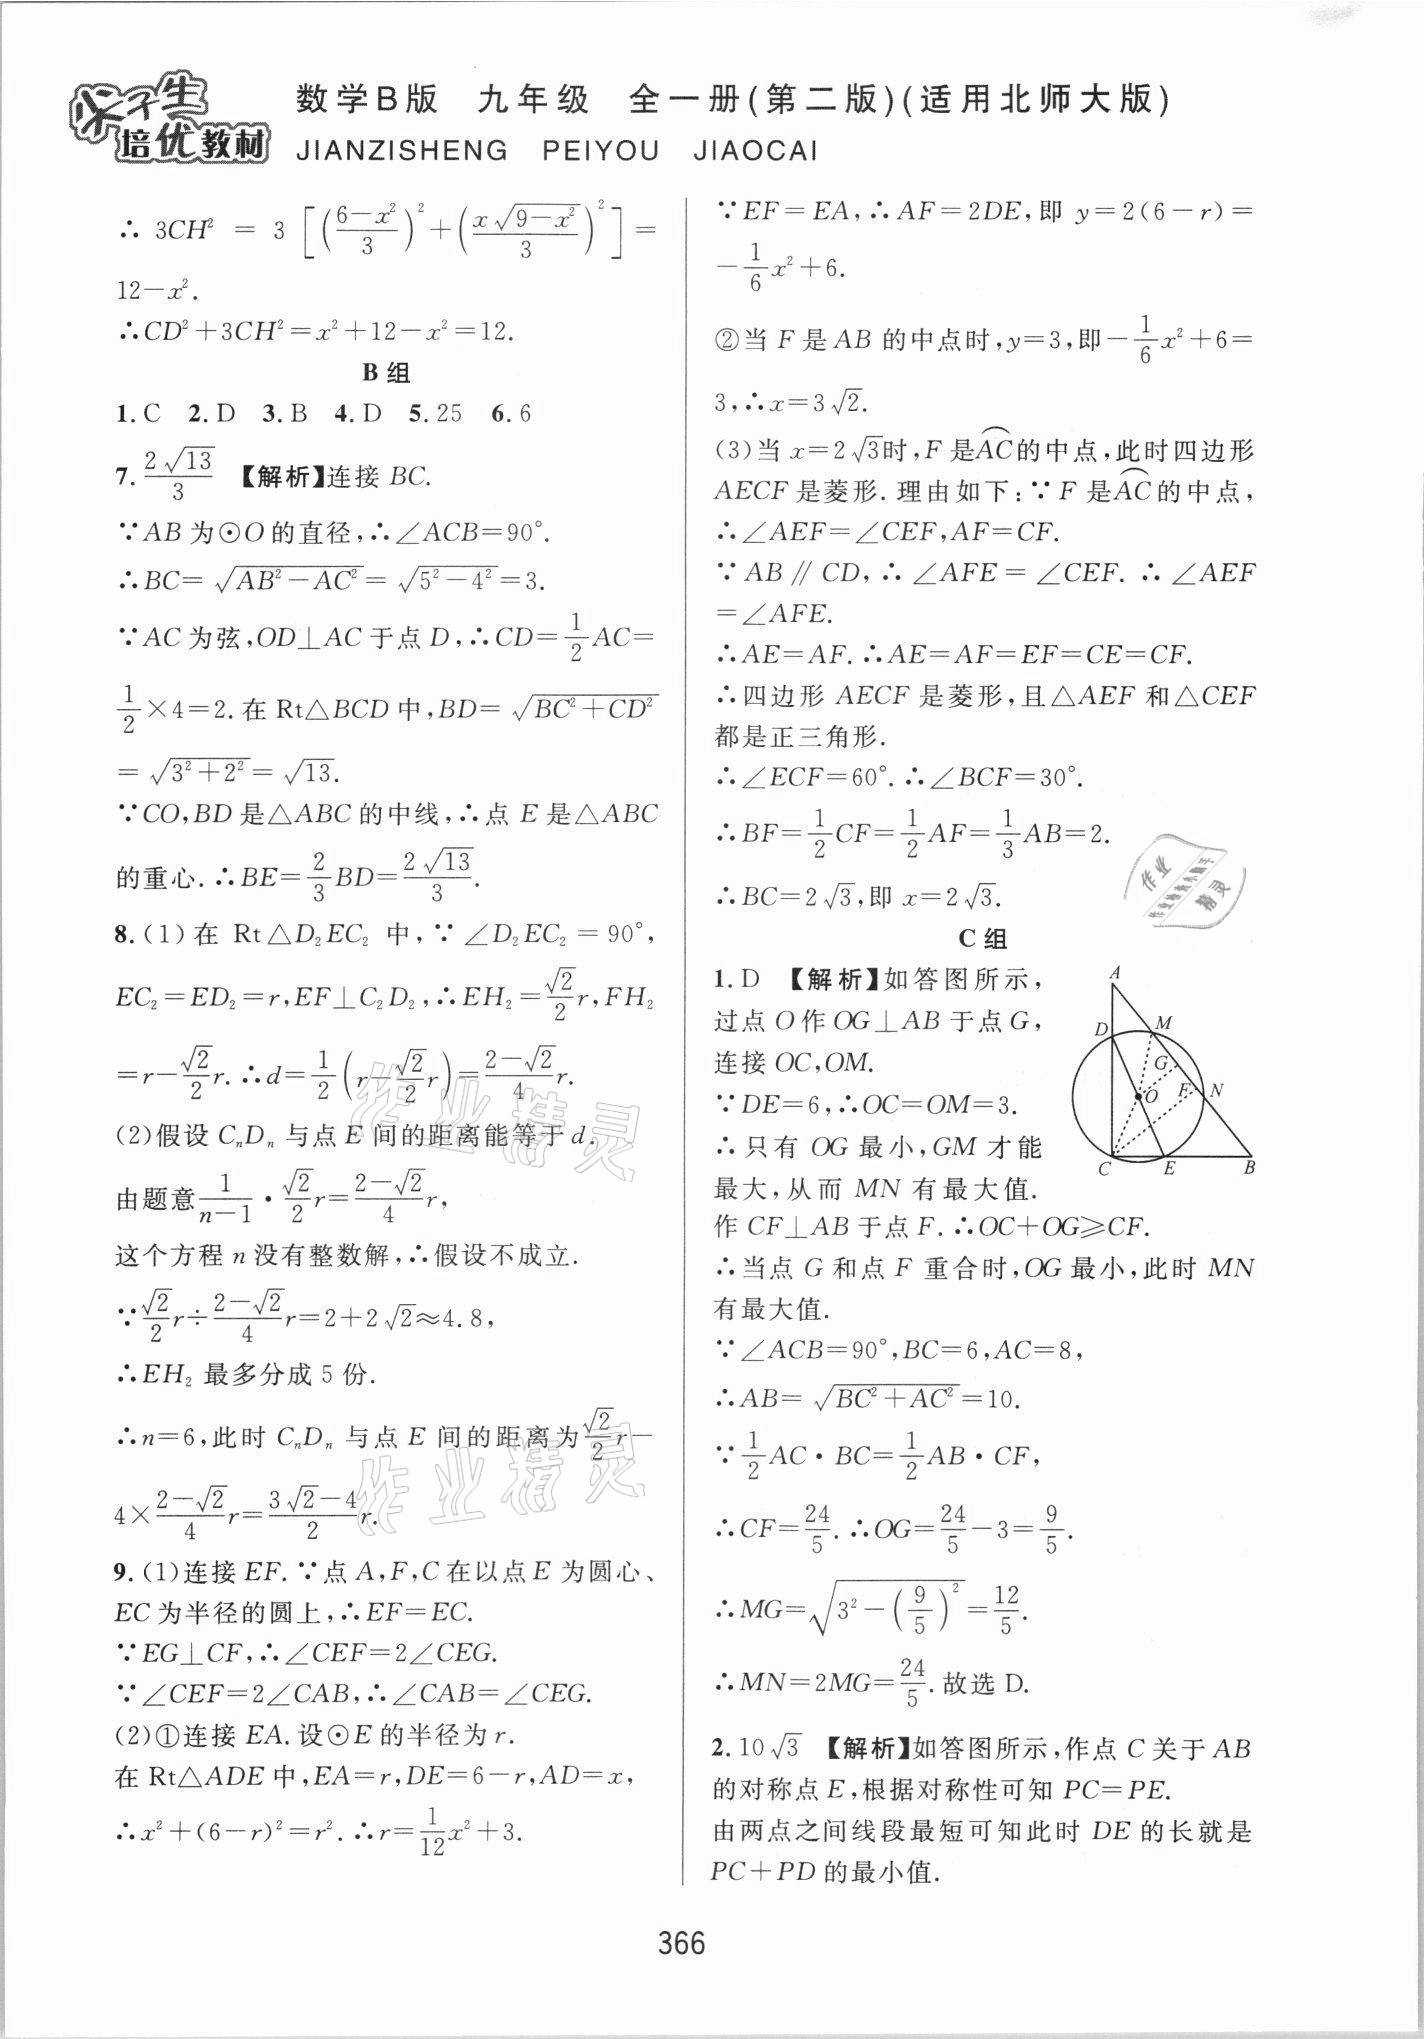 尖子生
培优教材
数学B版 九年级 全一册(第二版)(适用北师大版)
JIANZISHENG PEIYOU JIAOCAI
∴ 3CH² = 3[((6-x²)/3)²+(x√(9-x²)/3)²]=
12-x².
∴CD²+3CH²=x²+12-x²=12.
B 组
1.C 2.D 3.B 4.D 5.25 6.6
7. 2√13/3 【解析】连接 BC.
∵AB 为⊙O 的直径,∴∠ACB=90°.
∴BC=√(AB²-AC²)=√(5²-4²)=3.
∵AC 为弦,OD⊥AC 于点 D,∴CD=1/2 AC=
1/2×4=2.在 Rt△BCD 中,BD=√(BC²+CD²)
=√(3²+2²)=√13.
∵CO,BD 是△ABC 的中线,∴点 E 是△ABC
的重心.∴BE=2/3 BD=2√13/3.
8.(1)在 Rt△D₂EC₂ 中,∵∠D₂EC₂=90°,
EC₂=ED₂=r,EF⊥C₂D₂,∴EH₂=√2/2 r,FH₂
=r-√2/2 r.∴d=1/2(r-√2/2 r)=(2-√2)/4 r.
(2)假设 CₙDₙ 与点 E 间的距离能等于 d.
由题意 1/(n-1)·√2/2 r=(2-√2)/4 r,
这个方程 n 没有整数解,∴假设不成立.
∵√2/2 r÷(2-√2)/4 r=2+2√2≈4.8,
∴EH₂ 最多分成 5 份.
∴n=6,此时 CₙDₙ 与点 E 间的距离为 √2/2 r-
4×(2-√2)/4 r=(3√2-4)/2 r.
9.(1)连接 EF.∵点 A,F,C 在以点 E 为圆心、
EC 为半径的圆上,∴EF=EC.
∵EG⊥CF,∴∠CEF=2∠CEG.
∵∠CEF=2∠CAB,∴∠CAB=∠CEG.
(2)①连接 EA.设⊙E 的半径为 r.
在 Rt△ADE 中,EA=r,DE=6-r,AD=x,
∴x²+(6-r)²=r².∴r=1/12 x²+3.
∵EF=EA,∴AF=2DE,即 y=2(6-r)=
-1/6 x²+6.
②当 F 是 AB 的中点时,y=3,即-1/6 x²+6=
3,∴x=3√2.
(3)当 x=2√3时,F 是⌒AC的中点,此时四边形
AECF 是菱形.理由如下:∵F 是⌒AC的中点,
∴∠AEF=∠CEF,AF=CF.
∵AB∥CD,∴∠AFE=∠CEF.∴∠AEF
=∠AFE.
∴AE=AF.∴AE=AF=EF=CE=CF.
∴四边形 AECF 是菱形,且△AEF 和△CEF
都是正三角形.
∴∠ECF=60°.∴∠BCF=30°.
∴BF=1/2 CF=1/2 AF=1/3 AB=2.
∴BC=2√3,即 x=2√3.
C 组
1.D 【解析】如答图所示,
过点 O 作 OG⊥AB 于点 G,
连接 OC,OM.
∵DE=6,∴OC=OM=3.
∴只有 OG 最小,GM 才能
最大,从而 MN 有最大值.
A
D
M
G
F
N
O
C
E
B
作 CF⊥AB 于点 F.∴OC+OG≥CF.
∴当点 G 和点 F 重合时,OG 最小,此时 MN
有最大值.
∵∠ACB=90°,BC=6,AC=8,
∴AB=√(BC²+AC²)=10.
∵1/2 AC·BC=1/2 AB·CF,
∴CF=24/5.∴OG=24/5-3=9/5.
∴MG=√(3²-(9/5)²)=12/5.
∴MN=2MG=24/5.故选 D.
2.10√3 【解析】如答图所示,作点 C 关于 AB
的对称点 E,根据对称性可知 PC=PE.
由两点之间线段最短可知此时 DE 的长就是
PC+PD 的最小值.
366
作业精灵
作业精灵
作业
精灵